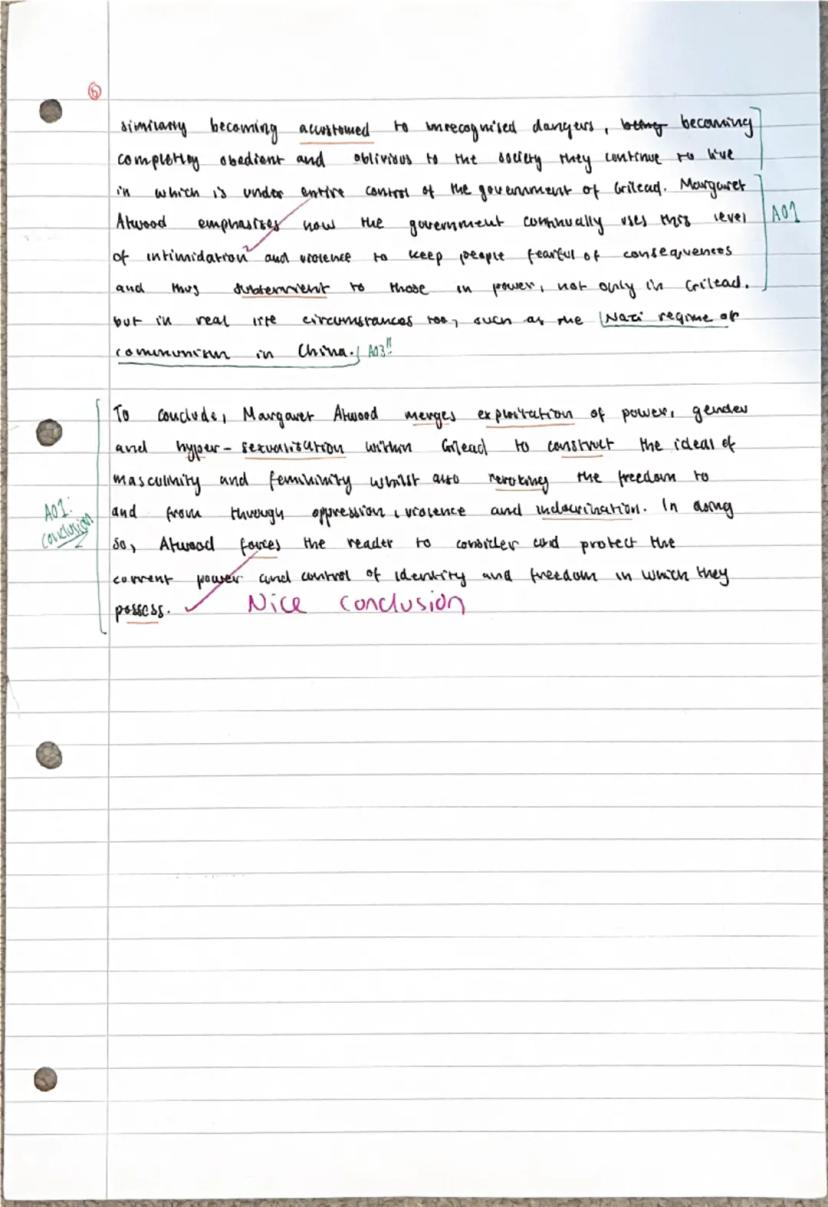 6
similarly becoming accustomed to unrecognised dangers, being becoming
completley obedient and oblivious to the society they continue to live
in which is under entire control of the government of Gilead. Margaret
Atwood emphasizes how the government continually uses this level
of intimidation and violence to keep people fearful of consequences
and thus to those in power, not only in Gilead.
but in real life circumstances too, such as the Nazi regime or
communism in China. A03!!
A01
To conclude, Margaret Atwood merges exploitation of power, gender
and hyper-sexualisation within Gilead to construct the ideal of
masculinity and femininity whilst also revoking the freedom to
and from through oppression, violence and indocrination. In doing
so, Atwood forces the reader to consider and protect the
current power and control of identity and freedom in which they
possess. Nice conclusion
A01:
conclusion